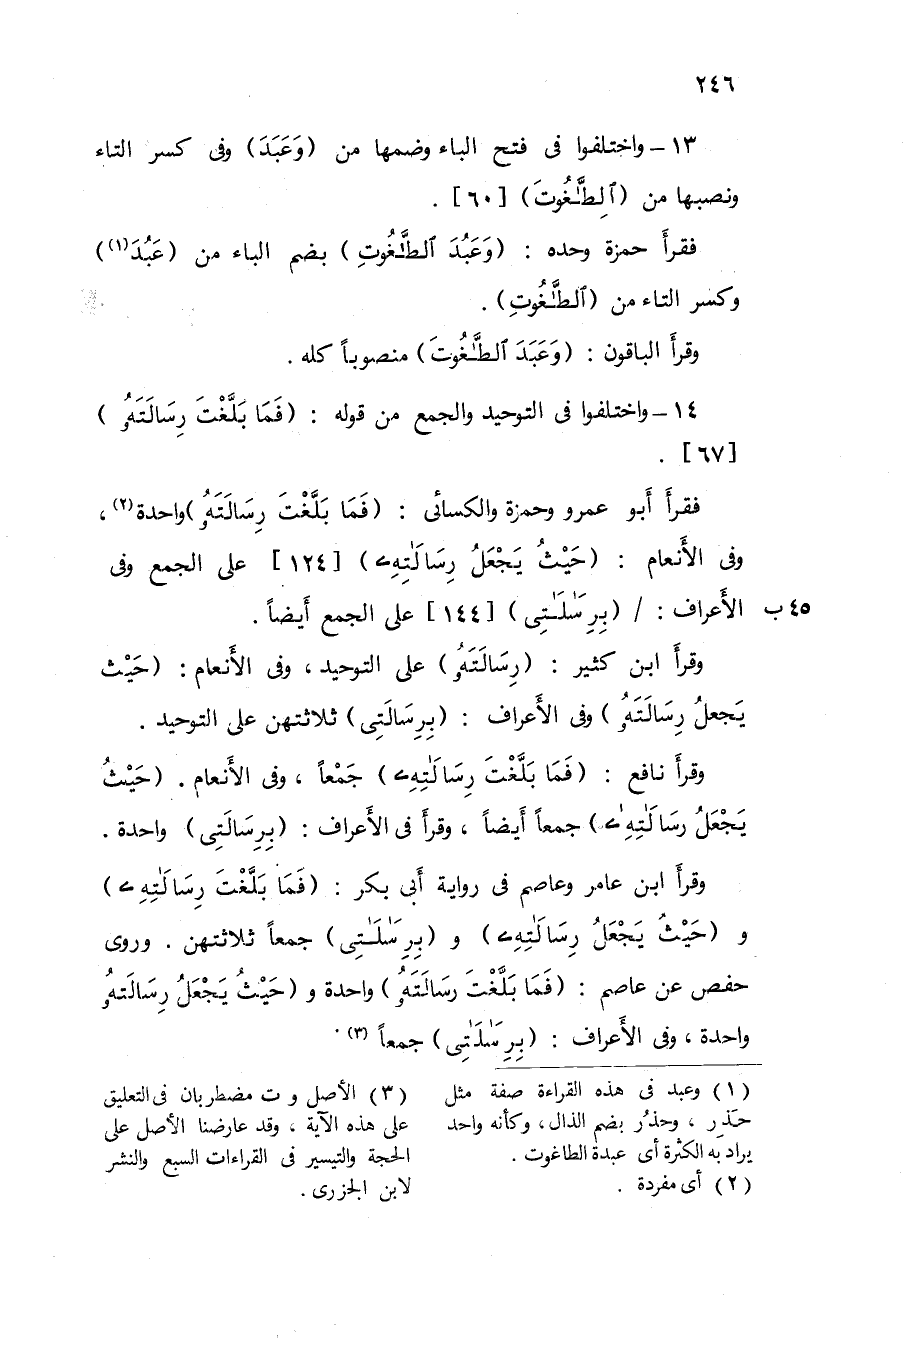 ٢٤٦
١٣ – واختلفوا فى فتح الباء وضمها من (وَعَبَدَ) وفى كسر التاء
ونصبها من (ٱلطَّـٰغُوتَ) [٦٠] .
فقرأ حمزة وحده : (وَعَبُدَ ٱلطَّـٰغُوتِ) بضم الباء من (عَبُدَ(١))
وكسر التاء من (ٱلطَّـٰغُوتِ) .
وقرأ الباقون : (وَعَبَدَ ٱلطَّـٰغُوتَ) منصوباً كله .
١٤ – واختلفوا فى التوحيد والجمع من قوله : (فَمَا بَلَّغْتَ رِسَالَتَهُۥ)
[٦٧] .
فقرأ أبو عمرو وحمزة والكسائى : (فَمَا بَلَّغْتَ رِسَالَتَهُۥ) واحدة(٢) ،
وفى الأنعام : (حَيْثُ يَجْعَلُ رِسَالَـٰتِهِۦ) [١٢٤] على الجمع وفى
٤٥ ب الأعراف : / (بِرِسَـٰلَـٰتِى) [١٤٤] على الجمع أيضاً .
وقرأ ابن كثير : (رِسَالَتَهُۥ) على التوحيد ، وفى الأنعام : (حَيْث
يَجعلُ رِسَالَتَهُۥ) وفى الأعراف : (بِرِسَالَتِى) ثلاثتهن على التوحيد .
وقرأ نافع : (فَمَا بَلَّغْتَ رِسَالَـٰتِهِۦ) جَمْعاً ، وفى الأنعام . (حَيْثُ
يَجْعَلُ رسَالَـٰتِهِۦ) جمعاً أيضاً ، وقرأ فى الأعراف : (بِرِسَالَتِى) واحدة .
وقرأ ابن عامر وعاصم فى رواية أبى بكر : (فَمَا بَلَّغْتَ رِسَالَـٰتِهِۦ)
و (حَيْثُ يَجْعَلُ رِسَالَـٰتِهِۦ) و (بِرِسَـٰلَـٰتِى) جمعاً ثلاثتهن . وروى
حفص عن عاصم : (فَمَا بَلَّغْتَ رِسَالَتَهُۥ) واحدة و (حَيْثُ يَجْعَلُ رِسَالَتهُۥ
واحدة ، وفى الأعراف : (بِرِسَـٰلَـٰتِى) جمعاً (٣) .
(١) وعبد فى هذه القراءة صفة مثل
حَذِر ، وحذُر بضم الذال، وكأنه واحد
يراد به الكثرة أى عبدة الطاغوت .
(٢) أى مفردة .
(٣) الأصل و ت مضطربان فى التعليق
على هذه الآية ، وقد عارضنا الأصل على
الحجة والتيسير فى القراءات السبع والنشر
لابن الجزرى .